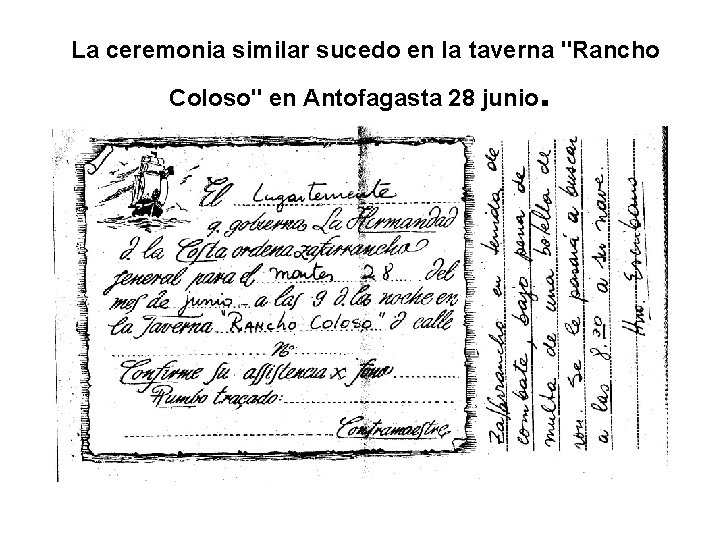 La ceremonia similar sucedo en la taverna "Rancho
Coloso" en Antofagasta 28 junio.
El Lugarteniente
q. gobierna La Hermandad
d la Costa ordena zafarrancho
general para el martes 28 del
mes de junio - a las 9 d las noche en
la Taverna "RANCHO COLOSO" d calle
Nº
Confirme su assistencia x fono
Rumbo traçado:
Contramaestre
Zafarrancho en tenida de
combate, bajo pena de
multa de una botella de
ron. Se le pasará a buscar
a las 8.30 a su nave.
Hno. Escribano